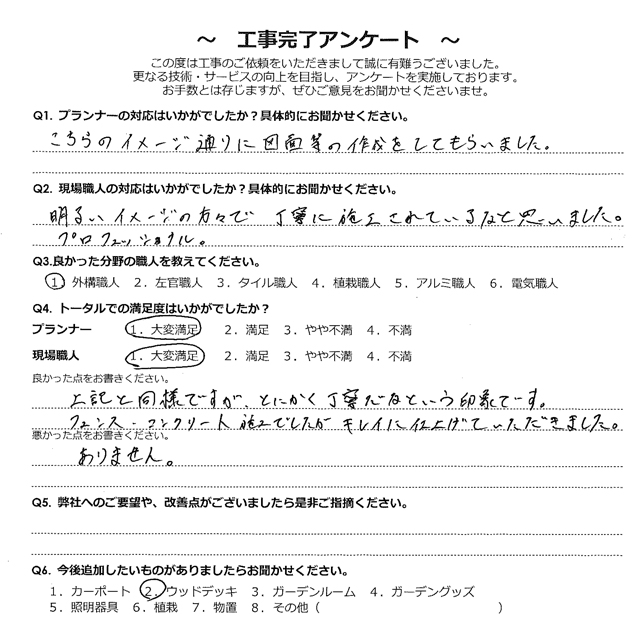 ～ 工事完了アンケート ～
この度は工事のご依頼をいただきまして誠に有難うございました。
更なる技術・サービスの向上を目指し、アンケートを実施しております。
お手数とは存じますが、ぜひご意見をお聞かせくださいませ。
Q1. プランナーの対応はいかがでしたか？具体的にお聞かせください。
こちらのイメージ通りに図面等の作成をしてもらいました。
Q2. 現場職人の対応はいかがでしたか？具体的にお聞かせください。
明るいイメージの方々で 丁寧に施工されているなと思いました。
プロフェッショナル。
Q3.良かった分野の職人を教えてください。
1. 外構職人 2. 左官職人 3. タイル職人 4. 植栽職人 5. アルミ職人 6. 電気職人
Q4. トータルでの満足度はいかがでしたか？
プランナー 1. 大変満足 2. 満足 3. やや不満 4. 不満
現場職人 1. 大変満足 2. 満足 3. やや不満 4. 不満
良かった点をお書きください。
上記と同様ですが、とにかく丁寧だなという印象です。
フェンス・コンクリート施工でしたがキレイに仕上げていただきました。
悪かった点をお書きください。
ありません。
Q5. 弊社へのご要望や、改善点がございましたら是非ご指摘ください。
Q6. 今後追加したいものがありましたらお聞かせください。
1. カーポート 2. ウッドデッキ 3. ガーデンルーム 4. ガーデングッズ
5. 照明器具 6. 植栽 7. 物置 8. その他（ ）